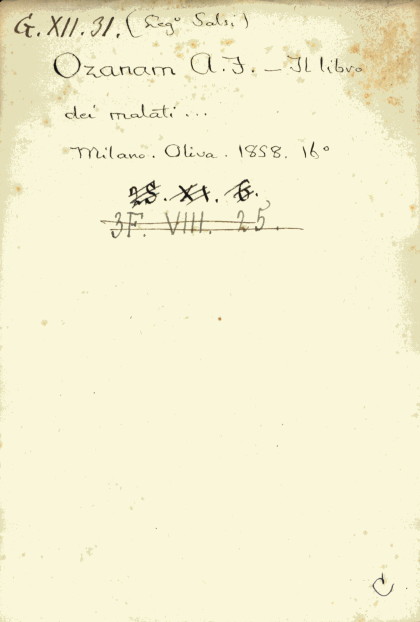 G. XII. 31. (Leg° Salsi)
Ozanam A. F. – Il libro
dei malati ...
Milano. Oliva. 1858. 16°
28. XI. 6.
3F. VIII. 25.